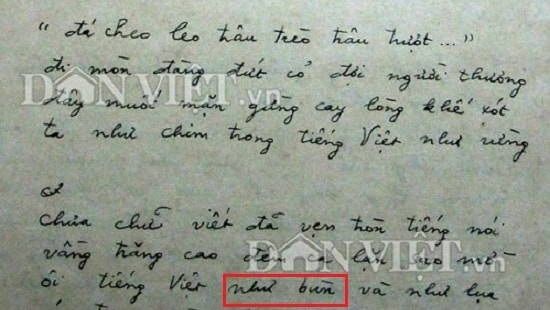 "đá cheo leo trâu trèo trâu trượt..."
đi mòn đàng dứt cỏ đợi người thương
đây muối mặn gừng cay lòng khế xót
ta như chim trong tiếng Việt như rừng
DÂNVIỆT.vn
Chưa chữ viết đã vẹn tròn tiếng nói
vầng trăng cao đêm cá lặn sao mờ
DÂNVIỆT.vn
ôi tiếng Việt như bùn và như lụa